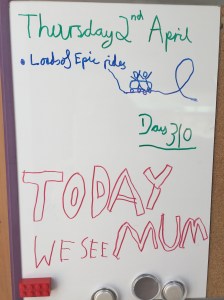 Thursday 2nd April
• Loads of Epic rides
Days 3/0
TODAY
WE SEE MUM